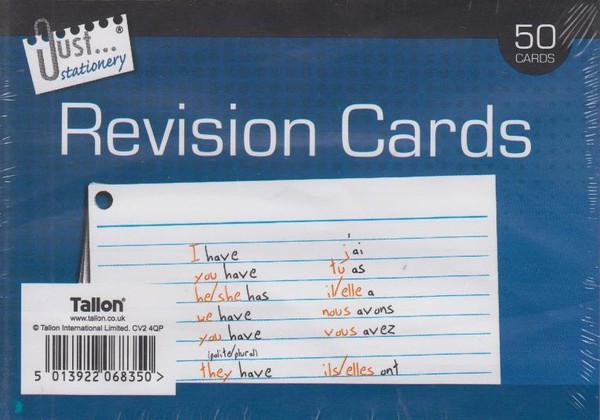 Just...®
stationery
50
CARDS
Revision Cards
I have j'ai
you have tu as
he/she has il/elle a
we have nous avons
you have vous avez
(polite/plural)
they have ils/elles ont
Tallon®
www.tallon.co.uk
© Tallon International Limited. CV2 4QP
5 013922 068350 >